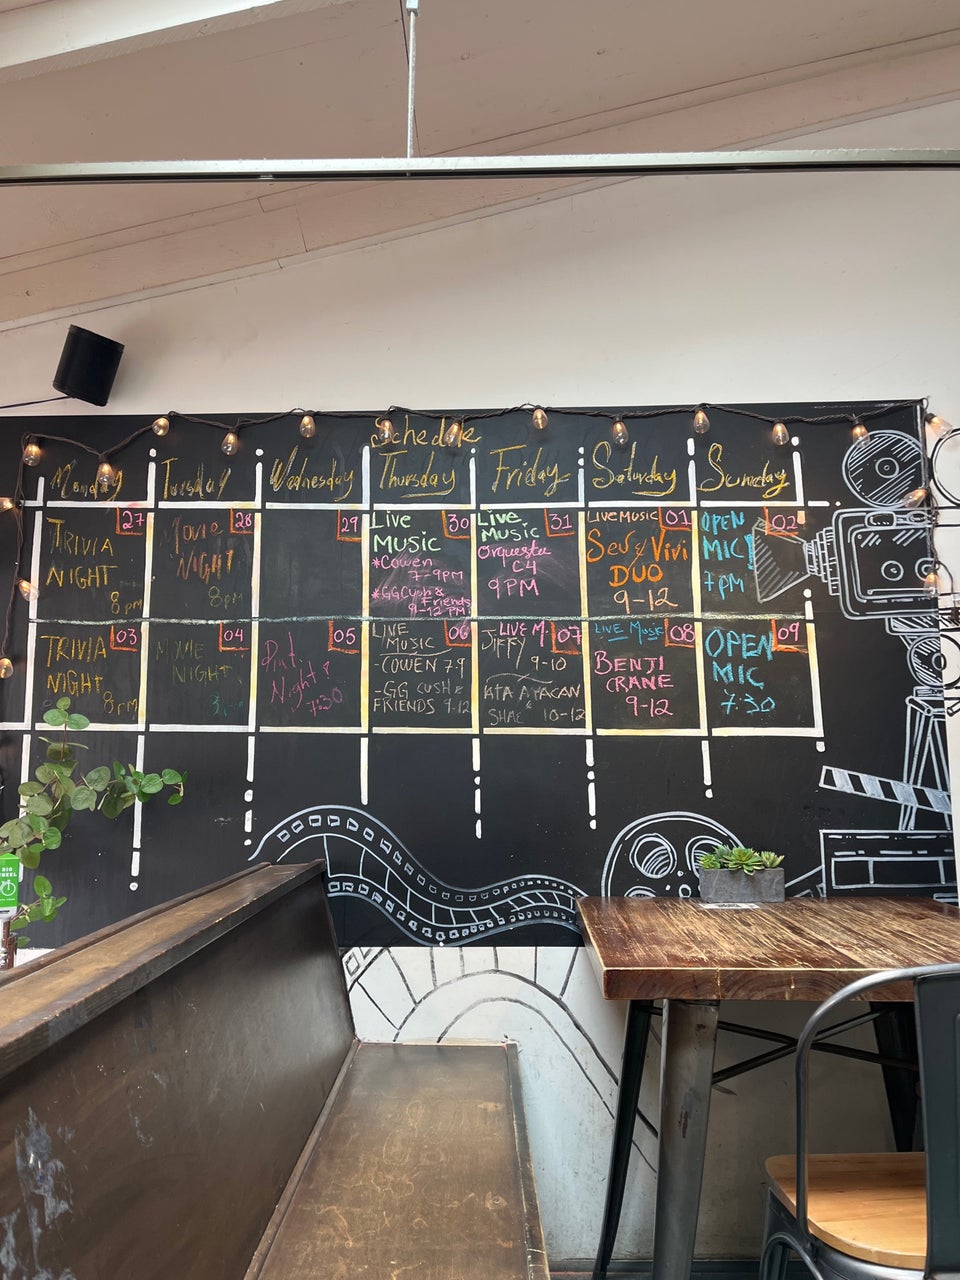 Schedule
Monday Tuesday Wednesday Thursday Friday Saturday Sunday
27
TRIVIA
NIGHT
8pm
28
MOVIE
NIGHT
8pm
29
30
Live
Music
*Cowen
7-9pm
*GGCush &
Friends
9-12 PM
31
Live
Music
Orquesta
C4
9PM
01
LIVE MUSIC
Sev & Vivi
DUO
9-12
02
OPEN
MIC!
7pm
03
TRIVIA
NIGHT
8pm
04
MOVIE
NIGHT
05
Night
7:30
06
LIVE
MUSIC
-COWEN 7-9
-GG CUSH &
FRIENDS 9-12
07
LIVE M.
JIFFY
9-10
&
SHAE 10-12
08
LIVE MUSIC
BENJI
CRANE
9-12
09
OPEN
MIC
7:30